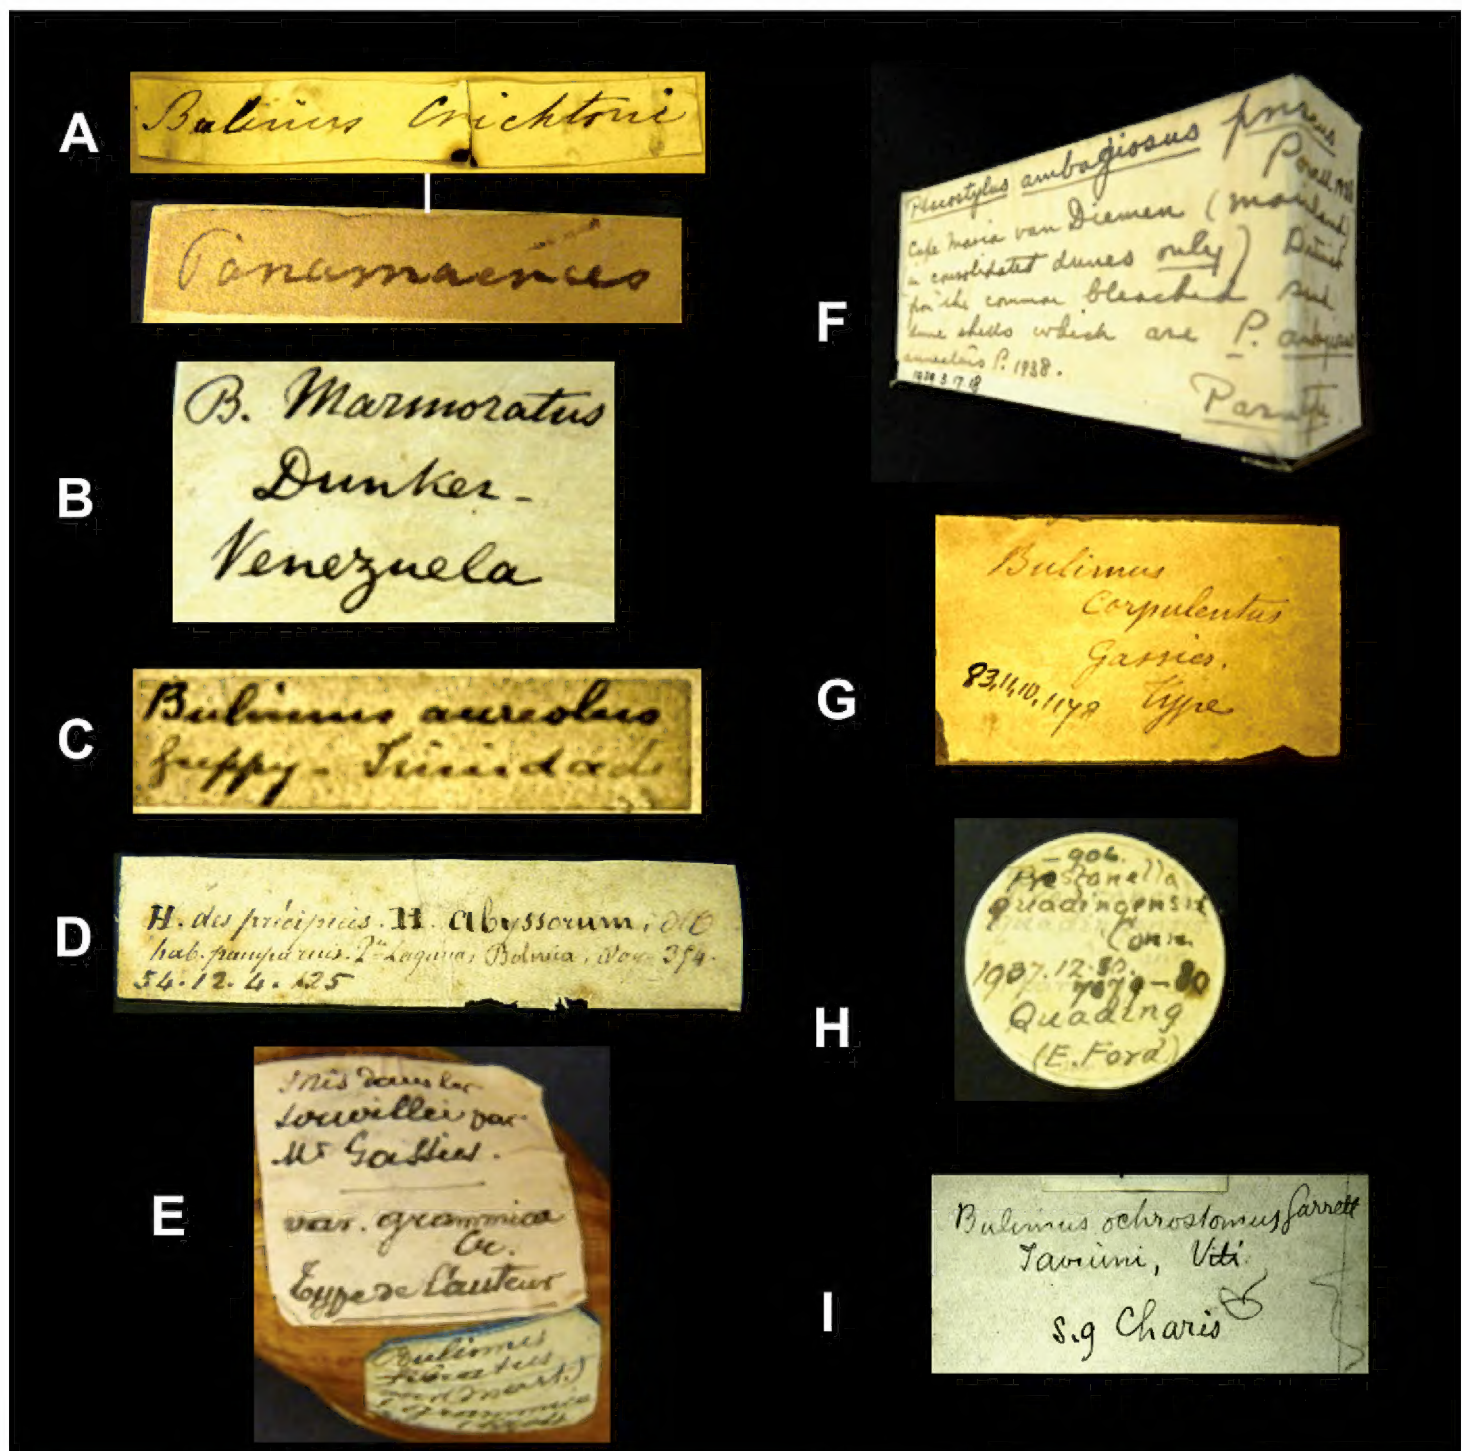 A
Bulimus Crichtoni
Panamaensis
B
B. Marmoratus
Dunker -
Venezuela
C
Bulimus aureolus
Guppy - Trinidad
D
H. des précipices. H. Abyssorum, d'O
hab. pampa ruis. Laguna, Bolivia, 354.
54.12.4.125
E
Mis dans les
souvillei par
Mr Gassies.
var. grammica
Cr.
Type de l'auteur
Bulimus
F
Placostylus ambagiosus priscus
Powell 1938
Cape Maria van Diemen (mainland)
in consolidated dunes only) Distinct
from the common bleached sub
dune shells which are P. ambagiosus
annectens P. 1938.
1939.3.17.18
Paratype
G
Bulimus
Corpulentus
Gassies.
83.11.10.1179 Type
H
-906.
Prestonella
quadingensis
Conn.
1937.12.30.
7679-80
Quading
(E. Ford)
I
Bulimus ochrostomus Garrett
Taviuni, Viti
s.g Charis